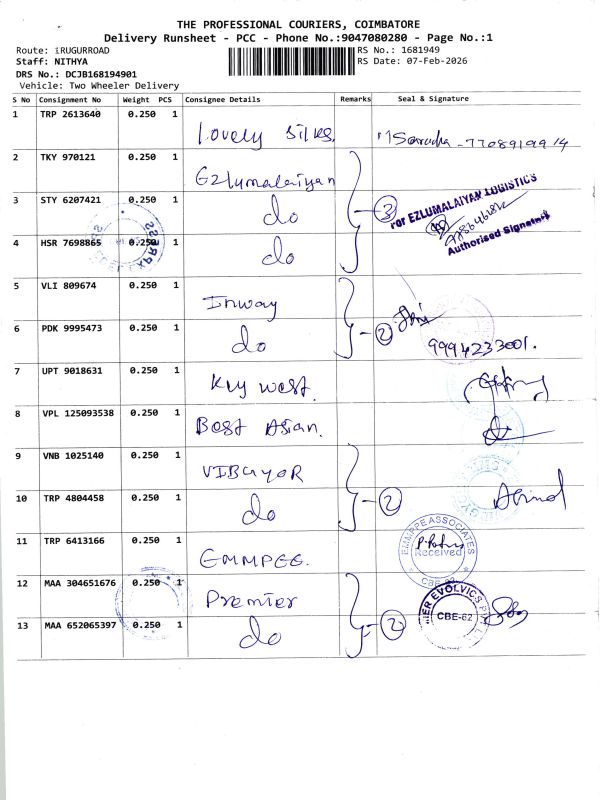 THE PROFESSIONAL COURIERS, COIMBATORE
Delivery Runsheet - PCC - Phone No.:9047080280 - Page No.:1
Route: IRUGURROAD
RS No.: 1681949
Staff: NITHYA
RS Date: 07-Feb-2026
DRS No.: DCJB168194901
Vehicle: Two Wheeler Delivery
S No Consignment No Weight PCS Consignee Details Remarks Seal & Signature
1 TRP 2613640 0.250 1 Lovely Silks.
2 TKY 970121 0.250 1 Ezlumalaiyan
3 STY 6207421 0.250 1 do 3 For EZLUMALAIYAN LOGISTICS
Authorised Signatory
4 HSR 7698865 0.250 1 do
5 VLI 809674 0.250 1 Inway
6 PDK 9995473 0.250 1 do 2 9994233001.
7 UPT 9018631 0.250 1 Key west.
8 VPL 125093538 0.250 1 Best Asian.
9 VNB 1025140 0.250 1 VIBGYOR
10 TRP 4804458 0.250 1 do 2
11 TRP 6413166 0.250 1 EMMPEE. EMMPPE ASSOCIATES
Received
12 MAA 304651676 0.250 1 Premier
13 MAA 652065397 0.250 1 do 2 CBE-62